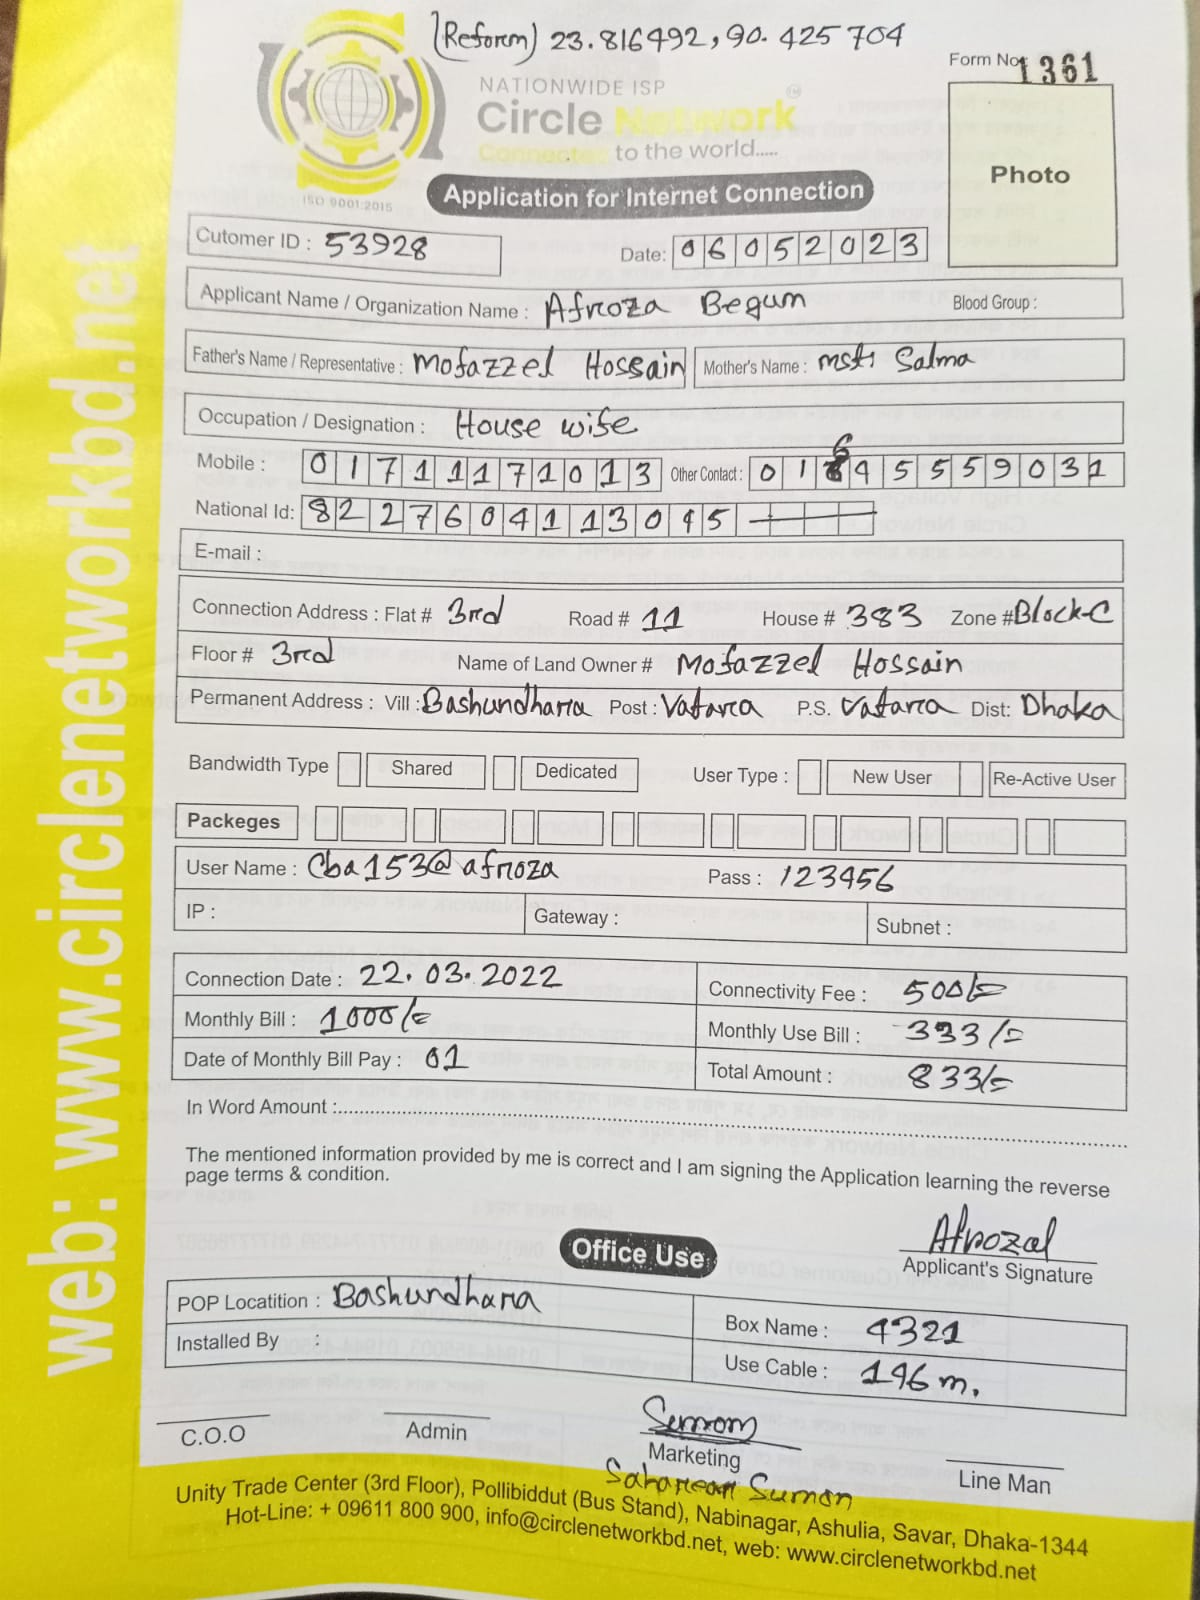 (Reform) 23.816492, 90.425704
Form No 1361
NATIONWIDE ISP
Circle Network
Connected to the world.....
ISO 9001:2015
Photo
Application for Internet Connection
Cutomer ID : 53928
Date: 06052023
Applicant Name / Organization Name : Afroza Begum Blood Group :
Father's Name / Representative : Mofazzel Hossain Mother's Name : Mst: Salma
Occupation / Designation : House wife
Mobile : 01711171013 Other Contact : 01645559031
National Id: 8227604113045
E-mail :
Connection Address : Flat # 3rd Road # 11 House # 383 Zone # Block-C
Floor # 3rd Name of Land Owner # Mofazzel Hossain
Permanent Address : Vill : Bashundhara Post : Vatara P.S. Vatara Dist: Dhaka
Bandwidth Type Shared Dedicated User Type : New User Re-Active User
Packeges
User Name : Cba153@afroza Pass : 123456
IP : Gateway : Subnet :
Connection Date : 22.03.2022 Connectivity Fee : 500/=
Monthly Bill : 1000/= Monthly Use Bill : 333/=
Date of Monthly Bill Pay : 01 Total Amount : 833/=
In Word Amount :
The mentioned information provided by me is correct and I am signing the Application learning the reverse
page terms & condition.
Afroza
Applicant's Signature
Office Use
POP Locatition : Bashundhara Box Name : 4321
Installed By : Use Cable : 196 m.
C.O.O Admin Marketing Line Man
Suman
web: www.circlenetworkbd.net
Unity Trade Center (3rd Floor), Pollibiddut (Bus Stand), Nabinagar, Ashulia, Savar, Dhaka-1344
Hot-Line: + 09611 800 900, info@circlenetworkbd.net, web: www.circlenetworkbd.net